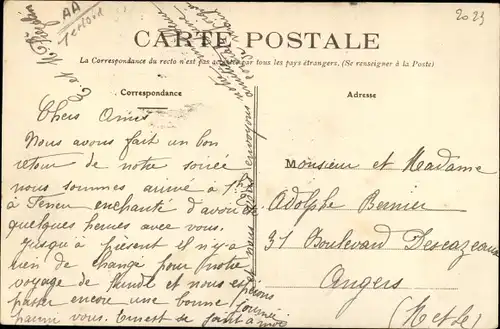 AA
2029
CARTE POSTALE
La Correspondance du recto n'est pas acceptée par tous les pays étrangers. (Se renseigner à la Poste)
Correspondance
Adresse
Chers Amis
Nous avons fait un bon
retour de notre soirée
nous sommes arrivé à
à Feneu enchanté d'avoir
quelques heures avec vous.
Jusqu'à présent il n'y a
rien de changé pour notre
voyage de jeudi et nous espérons
passer encore une bonne journée
parmi vous. Ernest se joint à moi
Monsieur et Madame
Adolphe Bernier
31 Boulevard Descazeaux
Angers
(M et L)